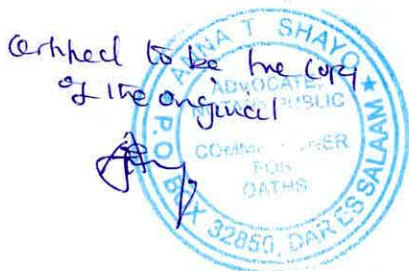 Certified to be true copy
of the original
ANNA T SHAYO
ADVOCATE,
NOTARY PUBLIC
COMMISSIONER
FOR
OATHS
P.O. BOX 32850, DAR ES SALAAM